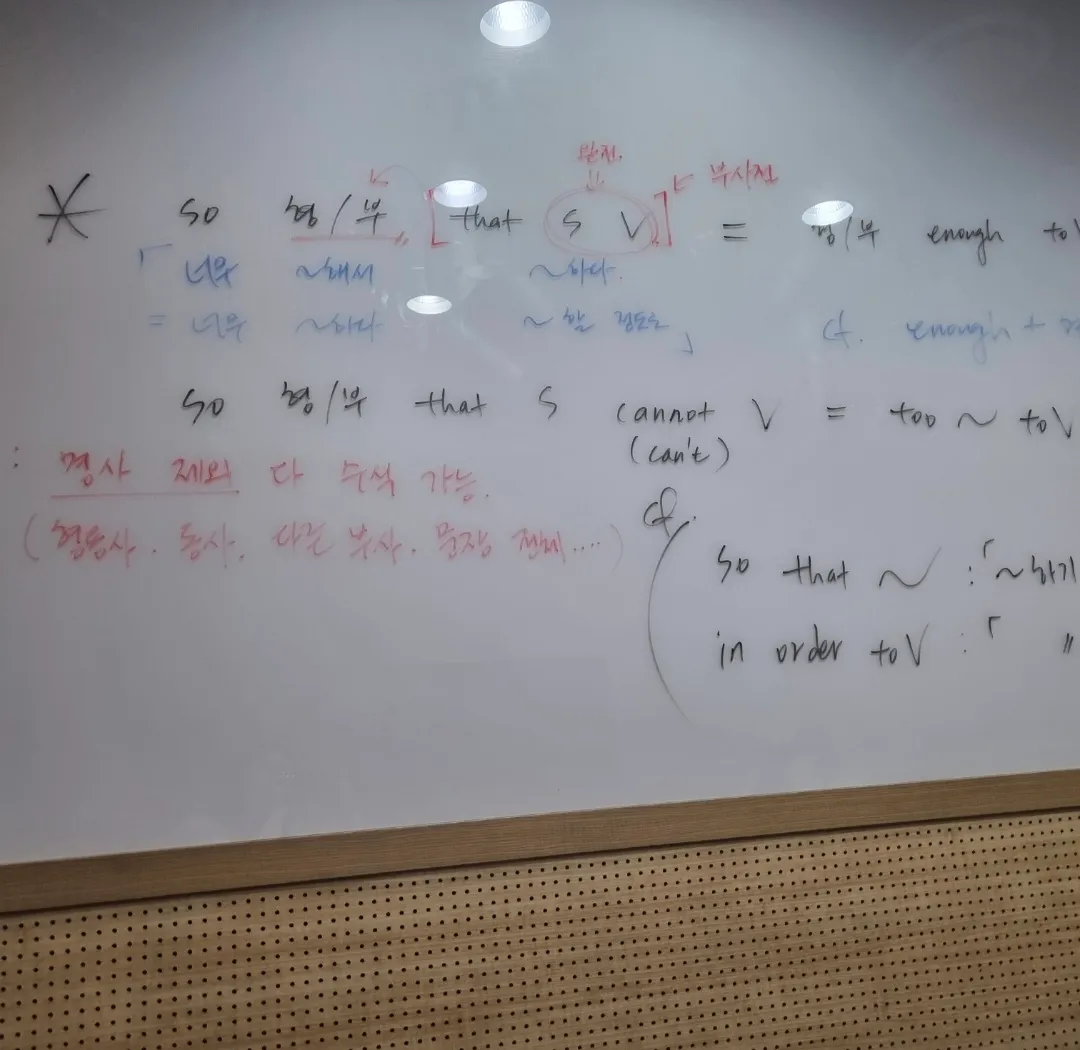 완전.
⇓
* so 형/부 [that S V] ← 부사절 = 형/부 enough to V
「너무 ~해서 ~하다.
= 너무 ~하다 ~할 정도로」 cf. enough +
so 형/부 that S cannot V = too ~ to V
(can't)
: 명사 제외 다 수식 가능.
(형용사, 동사, 다른 부사, 문장 전체....)
cf.
so that ~ : 「~하기
in order to V : 「 〃